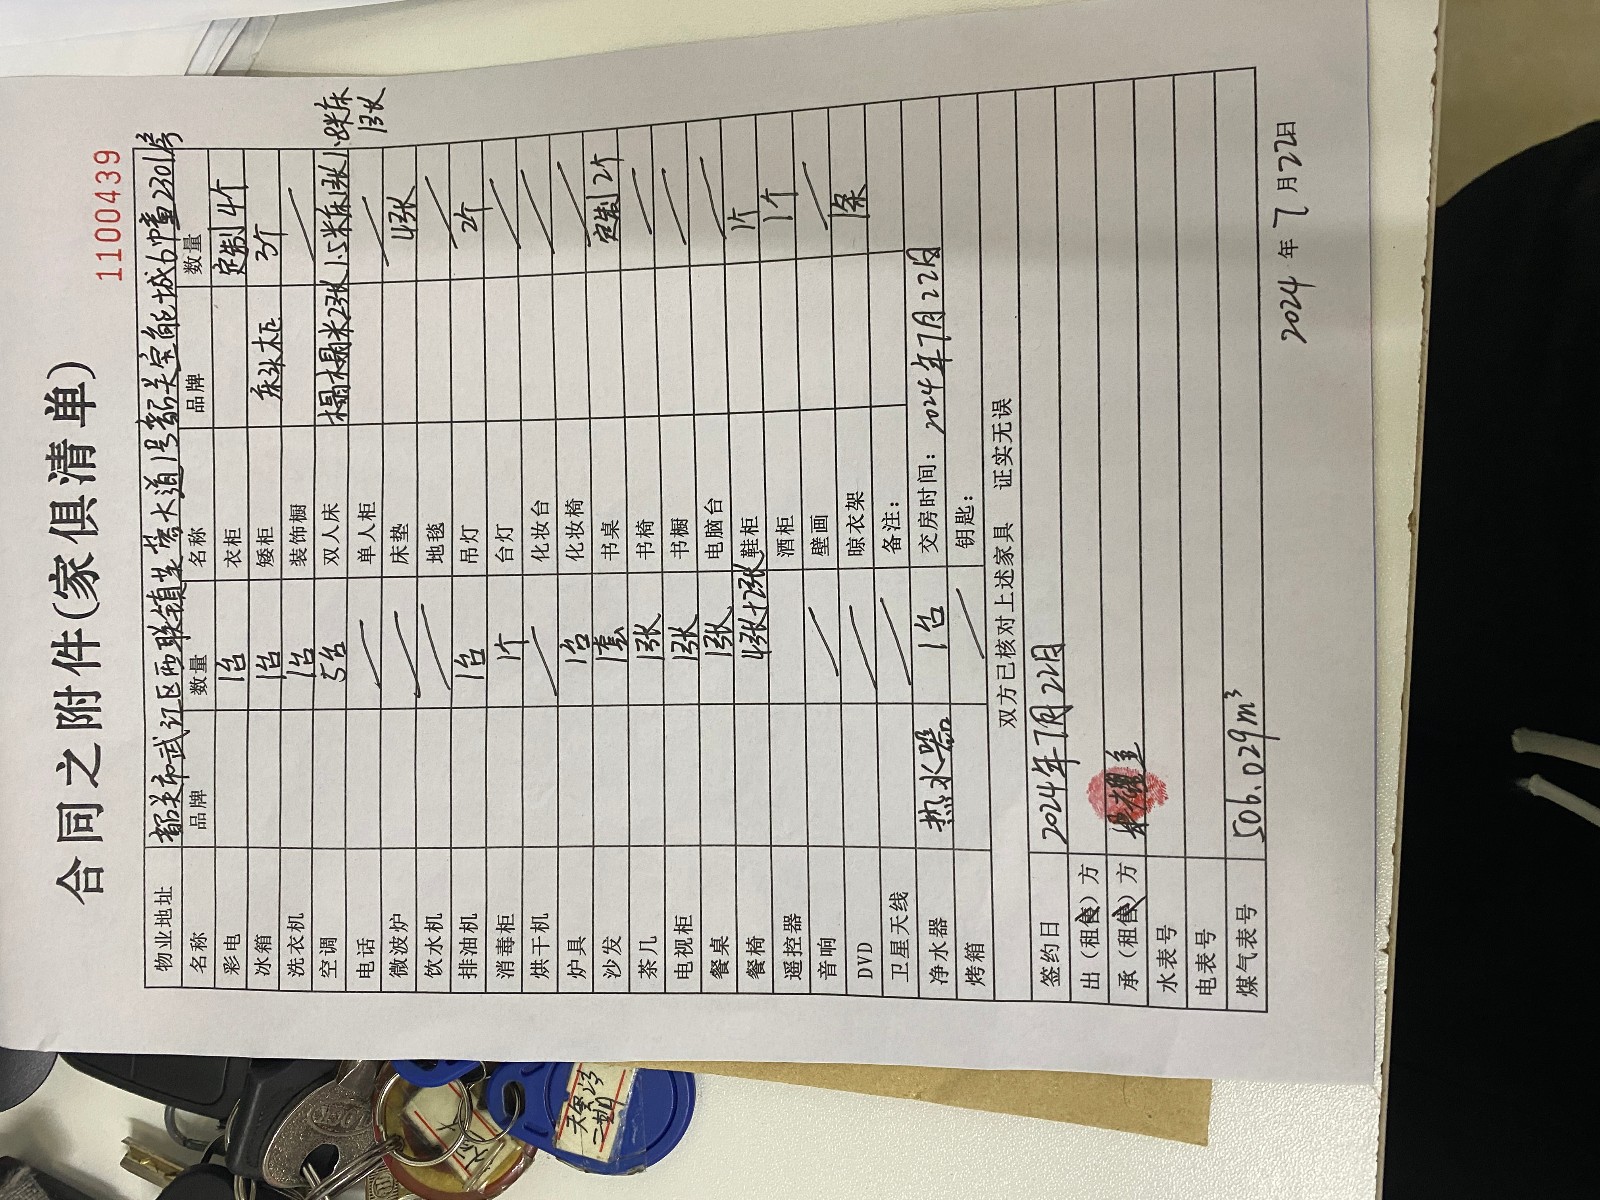 合同之附件(家俱清单)
1100439
物业地址 韶关市武江区西联镇芙蓉大道1号韶关宝能城6幢2201号
名称 品牌 数量 名称 品牌 数量
彩电 1台 衣柜 定制 4个
冰箱 1台 矮柜 床头柜 3个
洗衣机 1台 装饰橱
空调 5台 双人床 榻榻米2张 1.5米床1张 1.8米床1张
电话 单人柜
微波炉 床垫 4张
饮水机 地毯
排油机 1台 吊灯 2个
消毒柜 1个 台灯
烘干机 化妆台
炉具 1台 化妆椅
沙发 1套 书桌 定制 2个
茶几 1张 书椅
电视柜 1张 书橱
餐桌 1张 电脑台
餐椅 4张+2张 鞋柜 1个
遥控器 酒柜 1个
音响 壁画
DVD 晾衣架 1条
卫星天线 备注:
净水器 热水器 1台 交房时间: 2024年7月22日
烤箱 钥匙:
双方已核对上述家具 证实无误
签约日 2024年7月22日
出(租售)方
承(租售)方
水表号
电表号
煤气表号 506.029m³
2024 年 7 月 22日